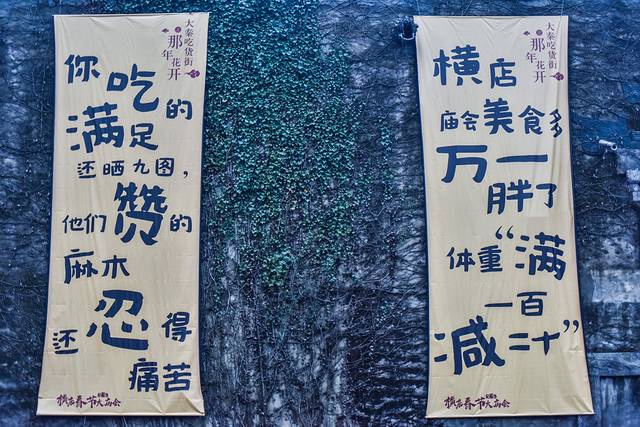 大秦吃货街
那年花开
你吃的
满足
还晒九图，
他们赞的
麻木
还忍得
痛苦
横店春节大庙会
大秦吃货街
那年花开
横店
庙会美食多
万一
胖了
体重“满
一百
减二十”
横店春节大庙会